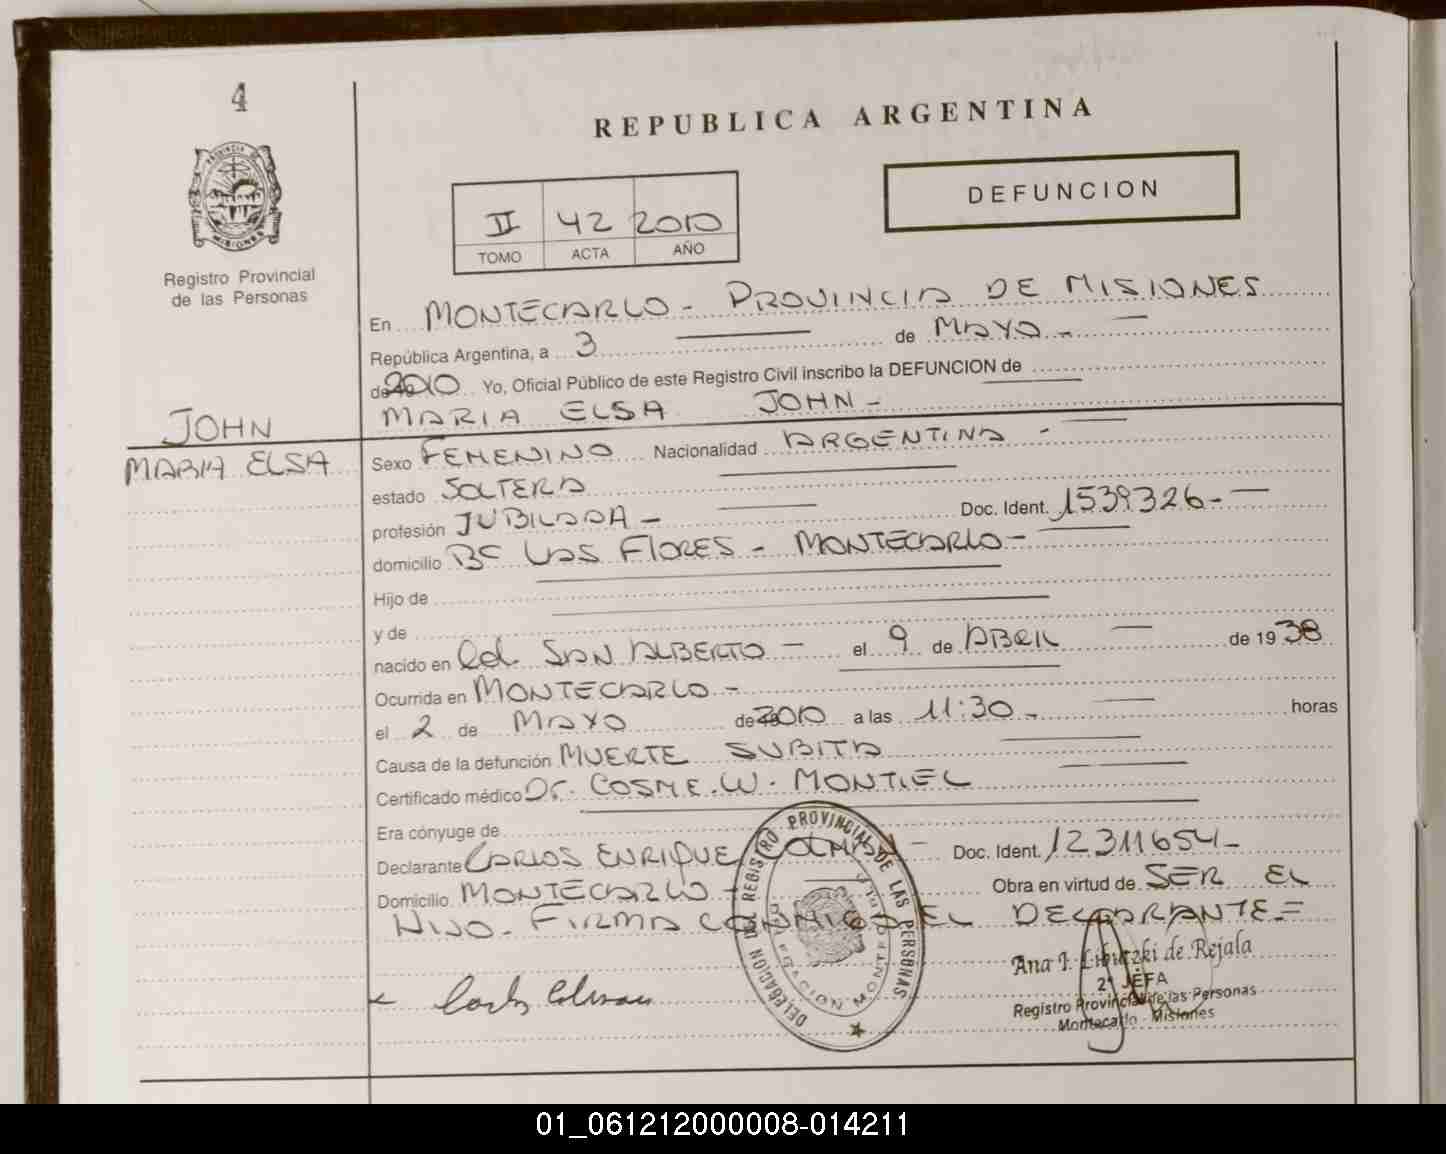 4
REPUBLICA ARGENTINA
DEFUNCION
PROVINCIA DE
MISIONES
Registro Provincial
de las Personas
II 42 2010
TOMO ACTA AÑO
En MONTECARLO - PROVINCIA DE MISIONES
República Argentina, a 3 de MAYO -
de 2010 Yo, Oficial Público de este Registro Civil inscribo la DEFUNCION de
MARIA ELSA JOHN -
JOHN
MARIA ELSA
Sexo FEMENINO Nacionalidad ARGENTINA -
estado SOLTERA
profesión JUBILADA - Doc. Ident. 1539326 -
domicilio Bº LAS FLORES - MONTECARLO -
Hijo de
y de
nacido en Col. SAN ALBERTO - el 9 de ABRIL de 1938
Ocurrida en MONTECARLO -
el 2 de MAYO de 2010 a las 11:30 - horas
Causa de la defunción MUERTE SUBITA
Certificado médico Dr. COSME . W . MONTIEL
Era cónyuge de
Declarante CARLOS ENRIQUE COLMAN - Doc. Ident. 12311654 -
Domicilio MONTECARLO - Obra en virtud de SER EL
HIJO - FIRMA CONMIGO EL DECLARANTE =
DELEGACION DEL REGISTRO PROVINCIAL DE LAS PERSONAS
Ana I. Libutzki de Rejala
2ª JEFA
Registro Provincial de las Personas
Montecarlo - Misiones
01_061212000008-014211